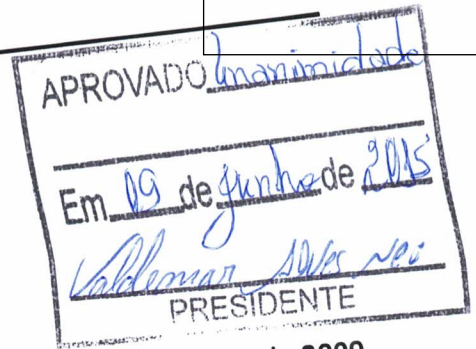 APROVADO Unanimidade
Em 09 de Junho de 2015
Valdemar Alves
PRESIDENTE